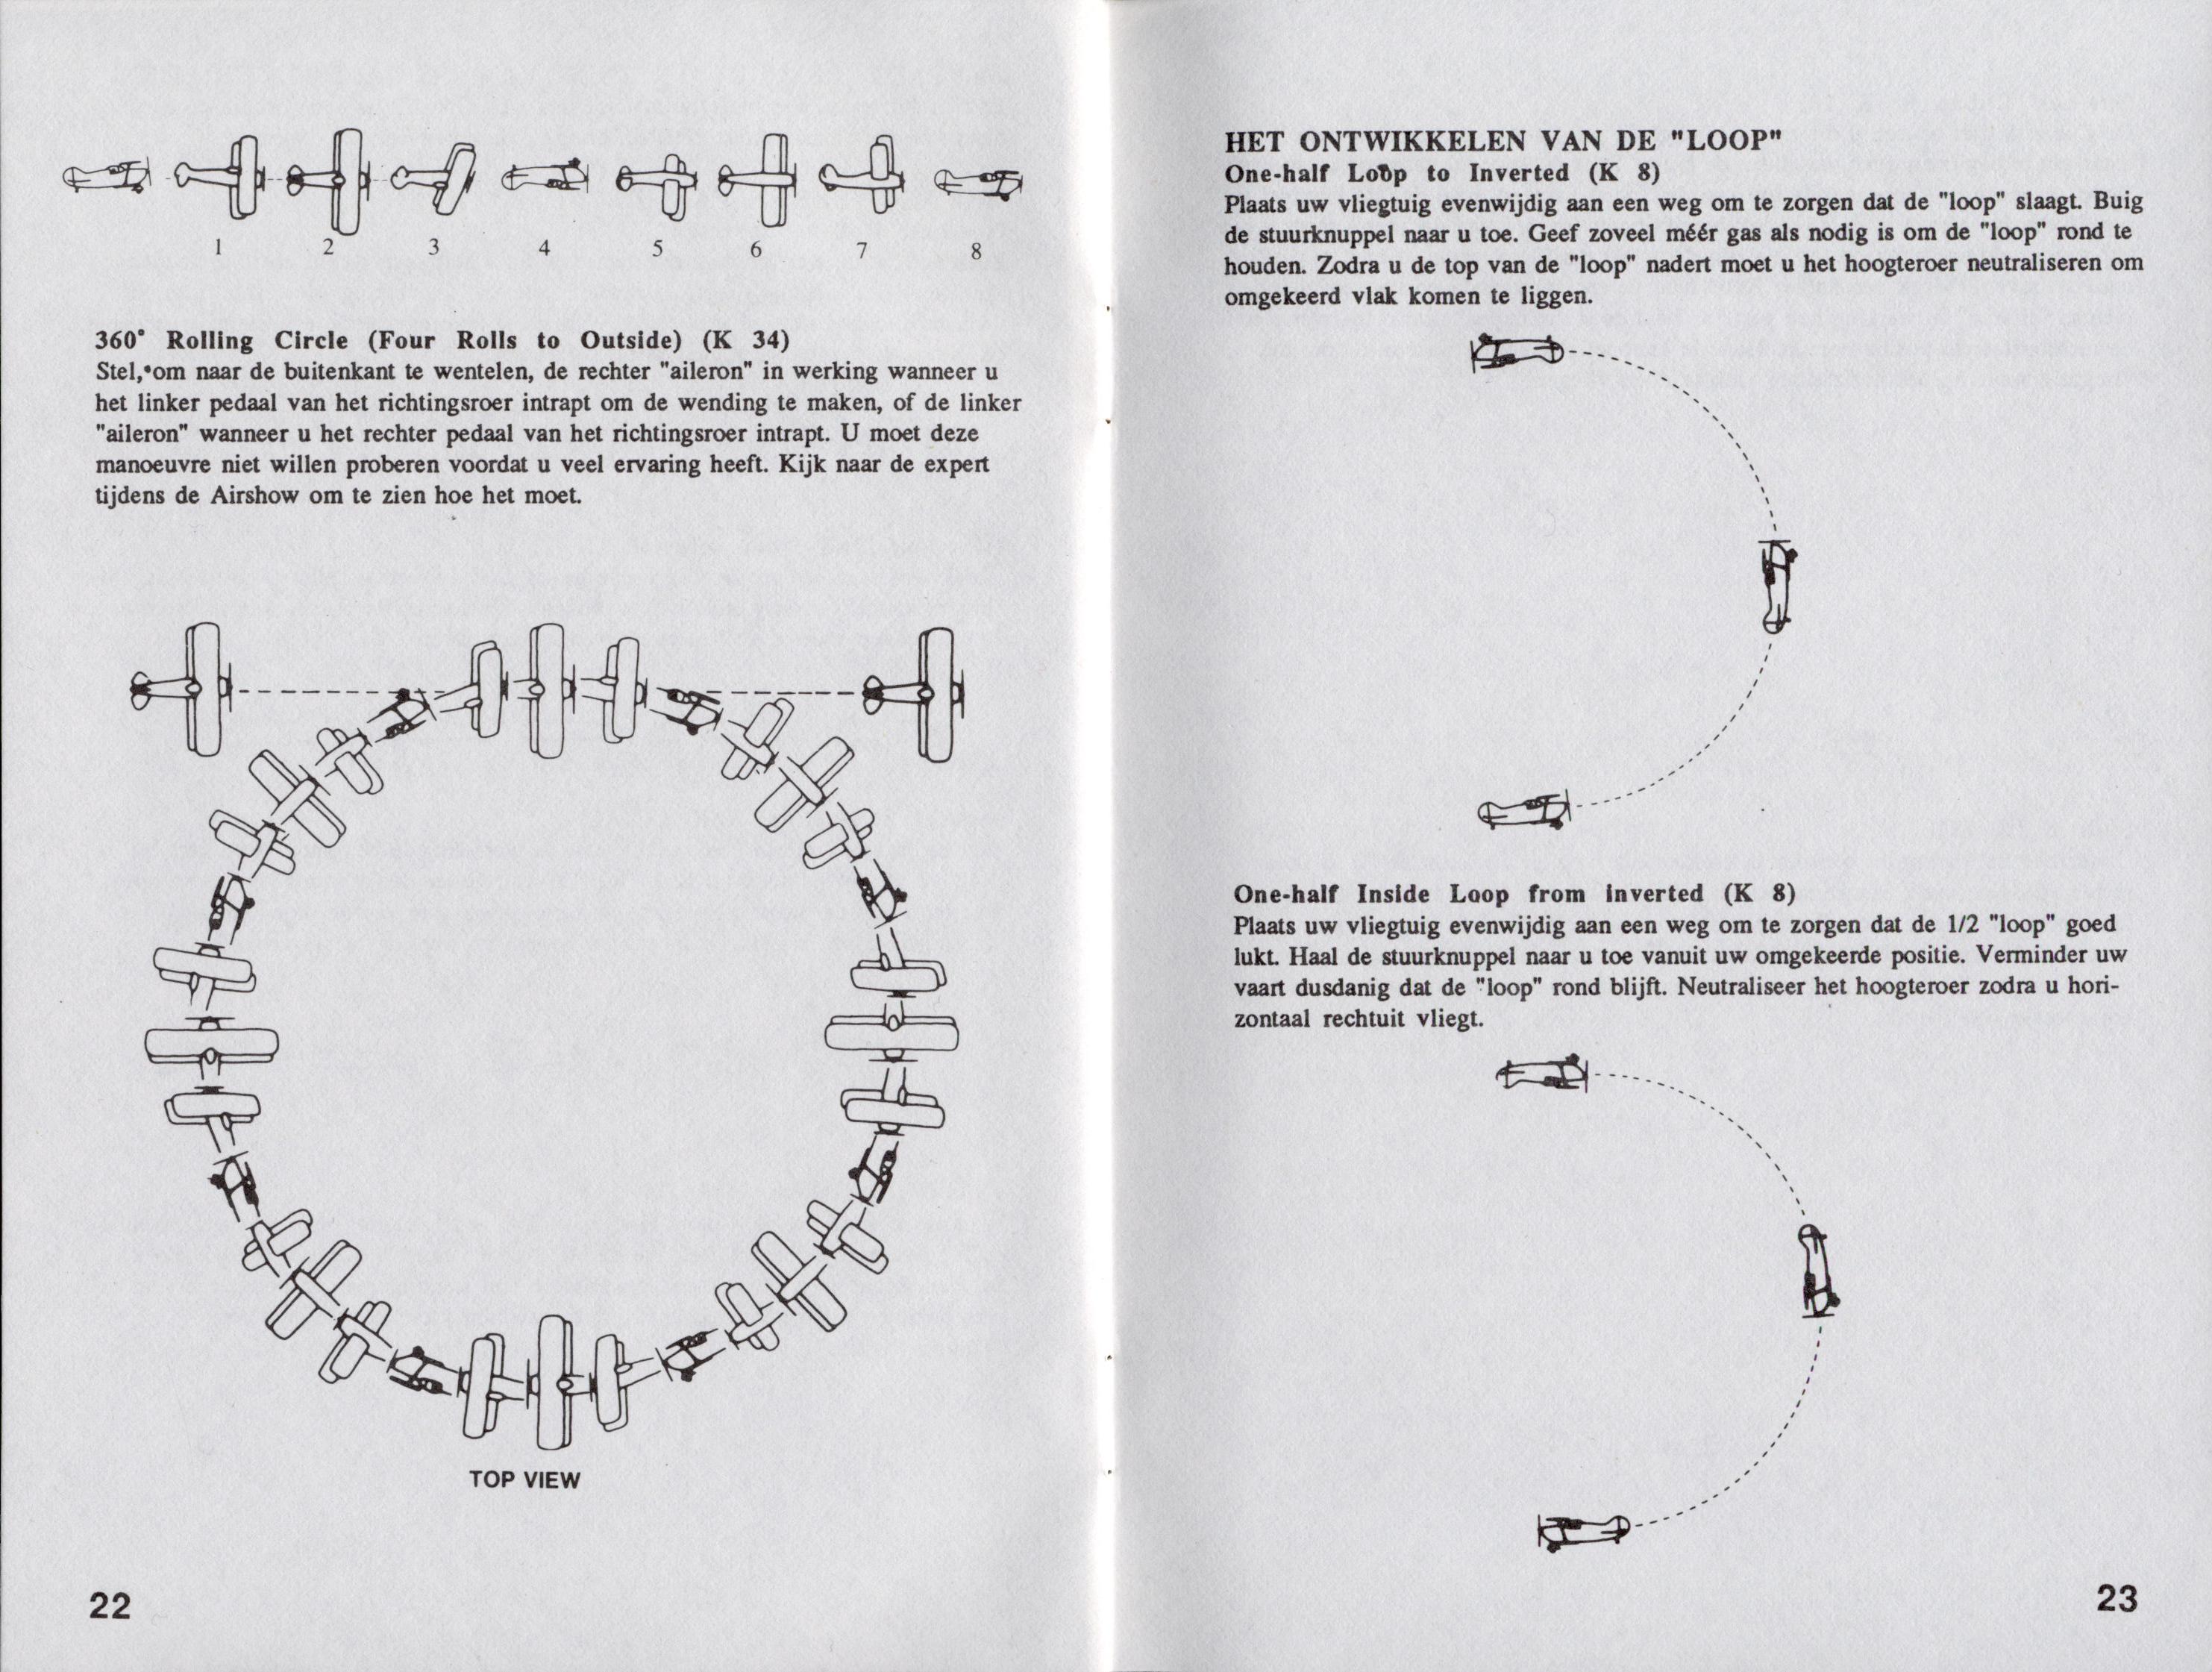 1 2 3 4 5 6 7 8
360° Rolling Circle (Four Rolls to Outside) (K 34)
Stel, om naar de buitenkant te wentelen, de rechter "aileron" in werking wanneer u
het linker pedaal van het richtingsroer intrapt om de wending te maken, of de linker
"aileron" wanneer u het rechter pedaal van het richtingsroer intrapt. U moet deze
manoeuvre niet willen proberen voordat u veel ervaring heeft. Kijk naar de expert
tijdens de Airshow om te zien hoe het moet.
TOP VIEW
22
HET ONTWIKKELEN VAN DE "LOOP"
One-half Loop to Inverted (K 8)
Plaats uw vliegtuig evenwijdig aan een weg om te zorgen dat de "loop" slaagt. Buig
de stuurknuppel naar u toe. Geef zoveel méér gas als nodig is om de "loop" rond te
houden. Zodra u de top van de "loop" nadert moet u het hoogteroer neutraliseren om
omgekeerd vlak komen te liggen.
One-half Inside Loop from inverted (K 8)
Plaats uw vliegtuig evenwijdig aan een weg om te zorgen dat de 1/2 "loop" goed
lukt. Haal de stuurknuppel naar u toe vanuit uw omgekeerde positie. Verminder uw
vaart dusdanig dat de "loop" rond blijft. Neutraliseer het hoogteroer zodra u hori-
zontaal rechtuit vliegt.
23